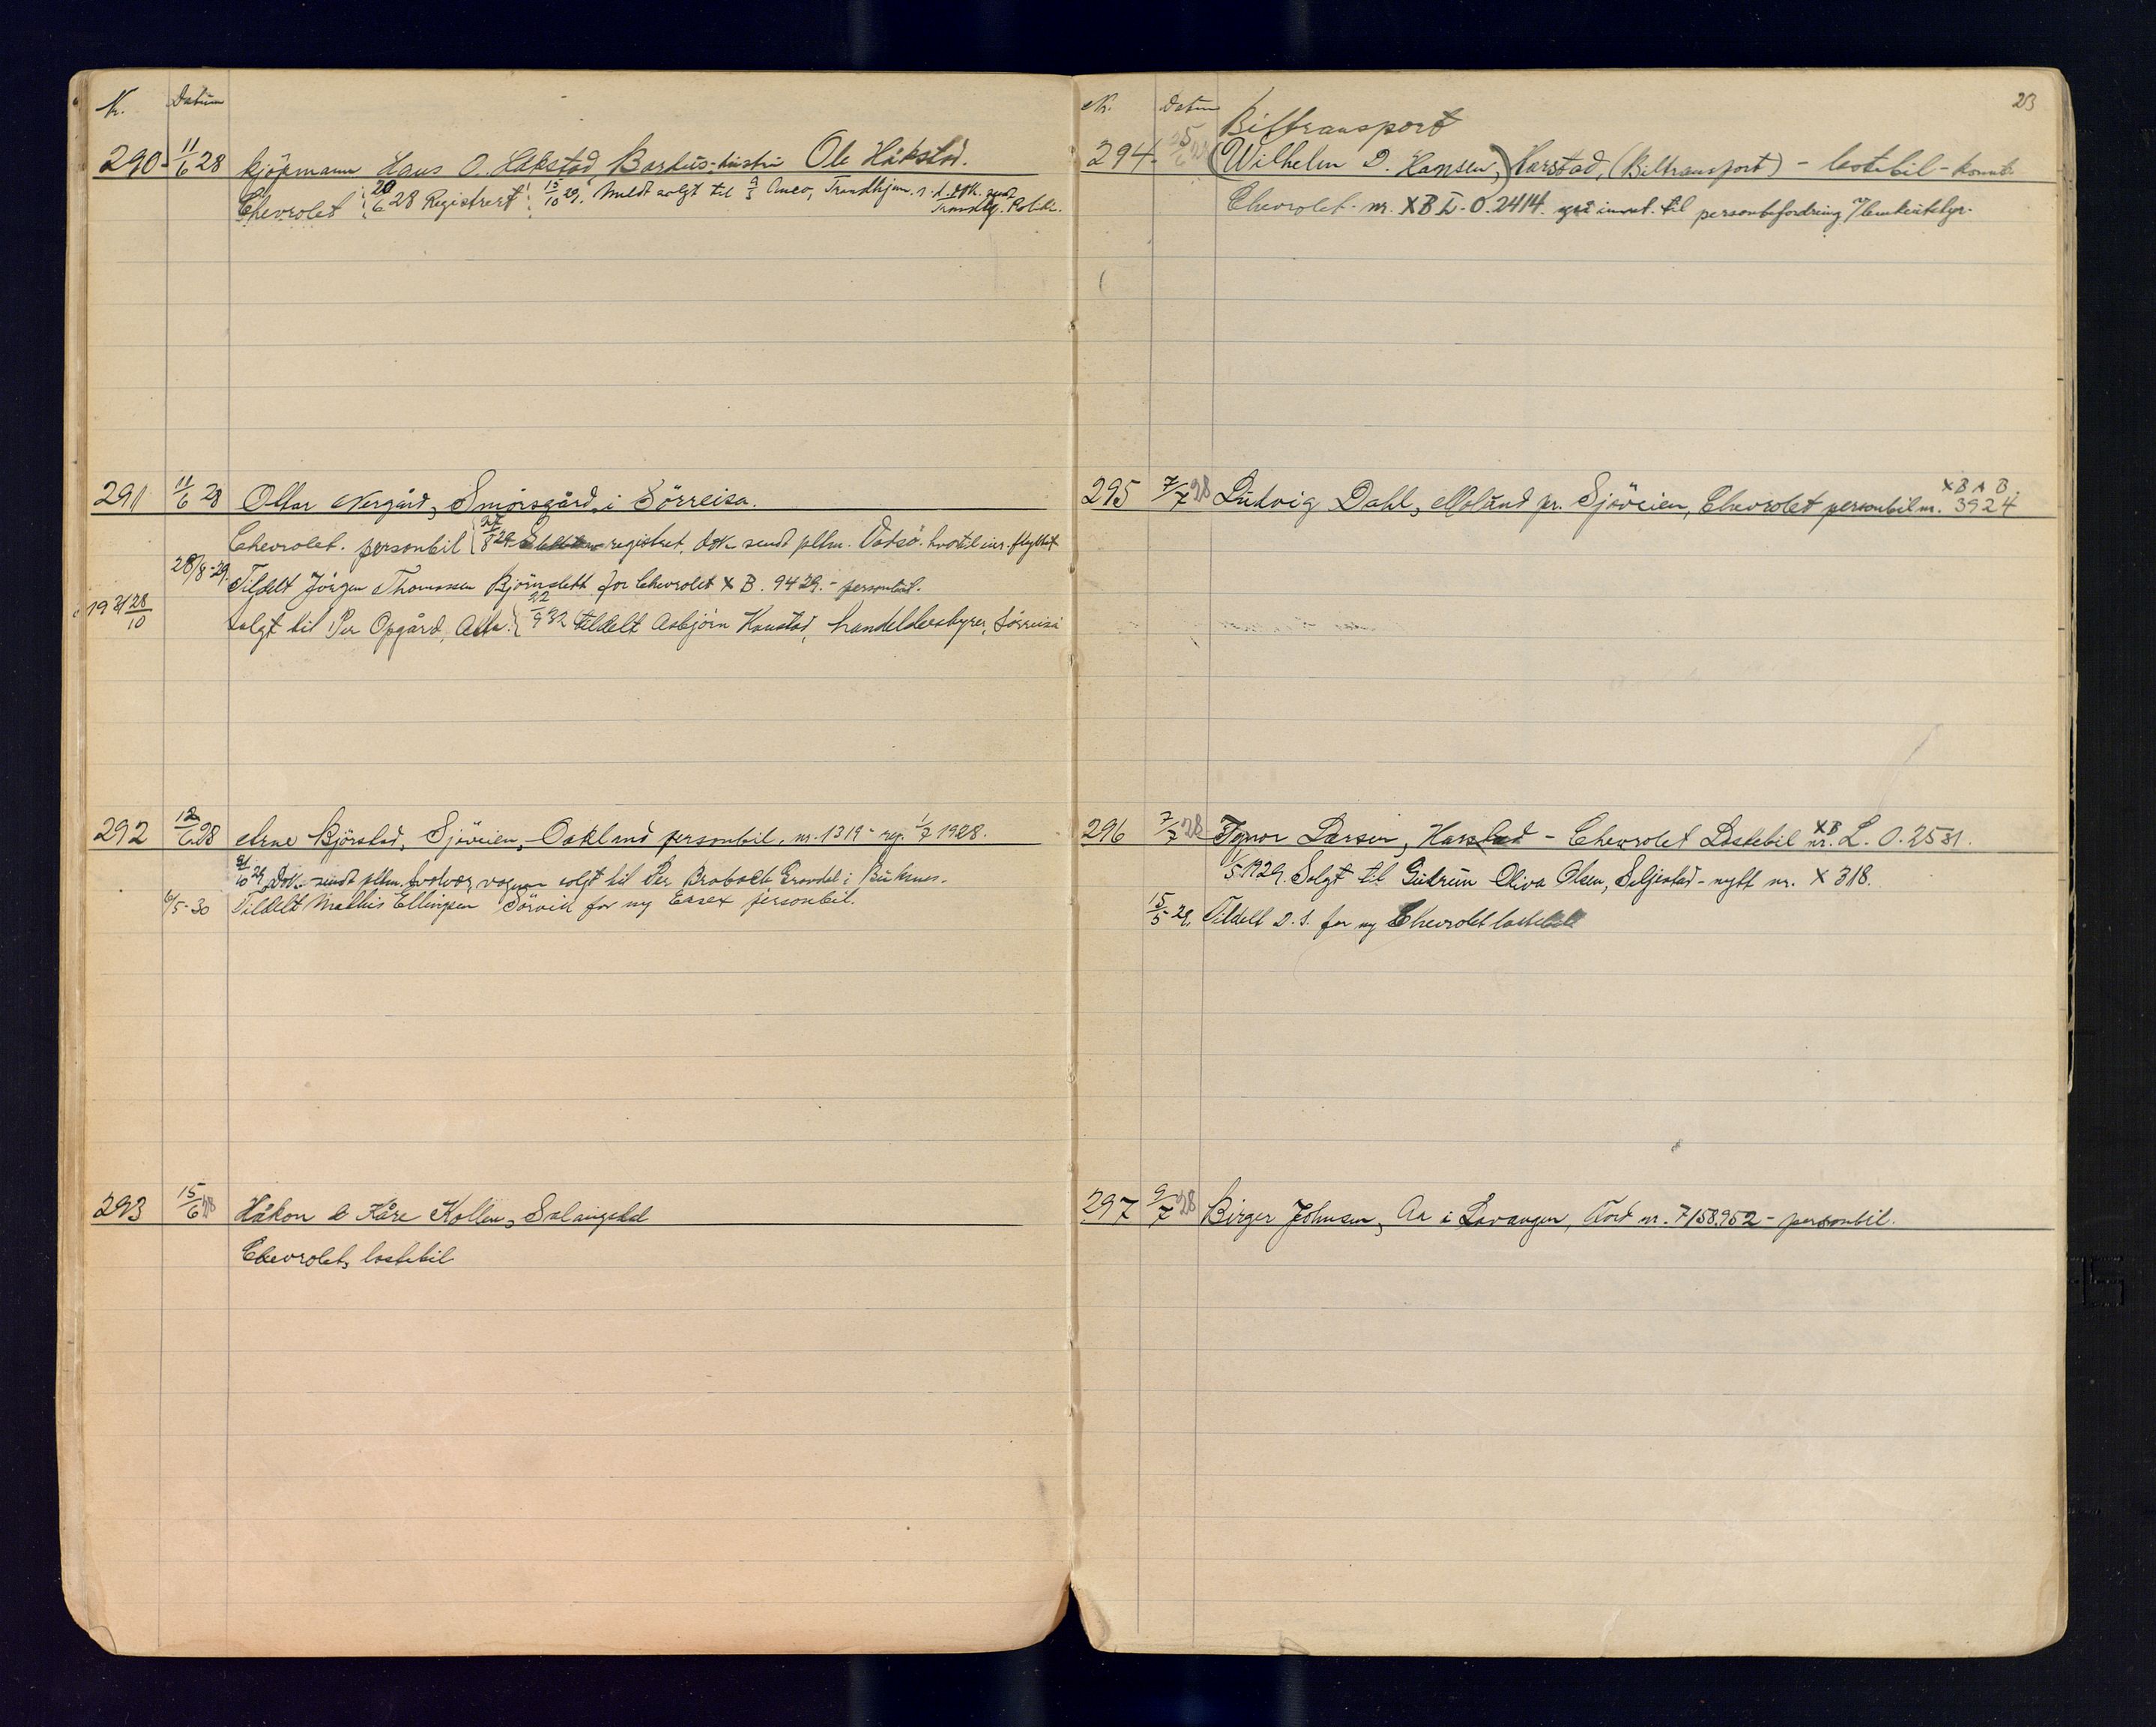 Nr. Datum
290 11/6 28 Kjöpmann Hans O. Hakstad, Barhus, Ole Håkstad.
Chevrolet 20/6 28 Registrert 15/10 29. Meldt solgt til A/S Anco, Trondhjem. s.d. dok. sendt
Trondhj. Politik.
291 11/6 28 Ottar Nergård, Smörsgård, i Sörreisa.
Chevrolet. personbil 8 29 registrert, dok sendt pltm. Vadsö. hvortil inr. flyttet
28/8-29. Tildelt Jörgen Thomassen Bjørnslett for Chevrolet XB. 9429. - personbil.
1931 28/10 Solgt til Per Opgård, Alta. 22/9 32 tildelt Asbjörn Kaustad, handelsbestyrer, Sörreisa
292 12/6 28 Arne Björstad, Sjöveien, - Oakland personbil, nr. 1319 - reg. 1/7 1928.
21/10 29, Dok. sendt pltm. Svolvær, vognen solgt til Per Braback Grøndel i Buksnes.
6/5-30 Tildelt Mathis Ellingsen Sörvik for ny Essex personbil.
293 15/6 28 Håkon & Kåre Kollen, Salangsdal
Chevrolet, lastebil
Nr. Datum 23
Biltransport
294 25/6 (Wilhelm D. Hansen,) Harstad, (Biltransport) - lastebil -
Chevrolet - nr. XB L.O.2414. til personbefordring
XBAB.
295 7/7 28 Ludvig Dahl, Moland pr. Sjöveien, Chevrolet personbil nr. 3924
296 7/7 28 Tynor Larsen, Harstad - Chevrolet Lastebil nr. XB L.O.2531.
1/5 1929. Solgt til Gudrun Oliva Olsen, Seljestad - nytt nr. X 318.
15/5 29. Tildelt D.S. for ny Chevrolet lastebil
297 9/7 28 Birger Johnsen, Aa i Lavangen, Ford nr. 7158952 - personbil.